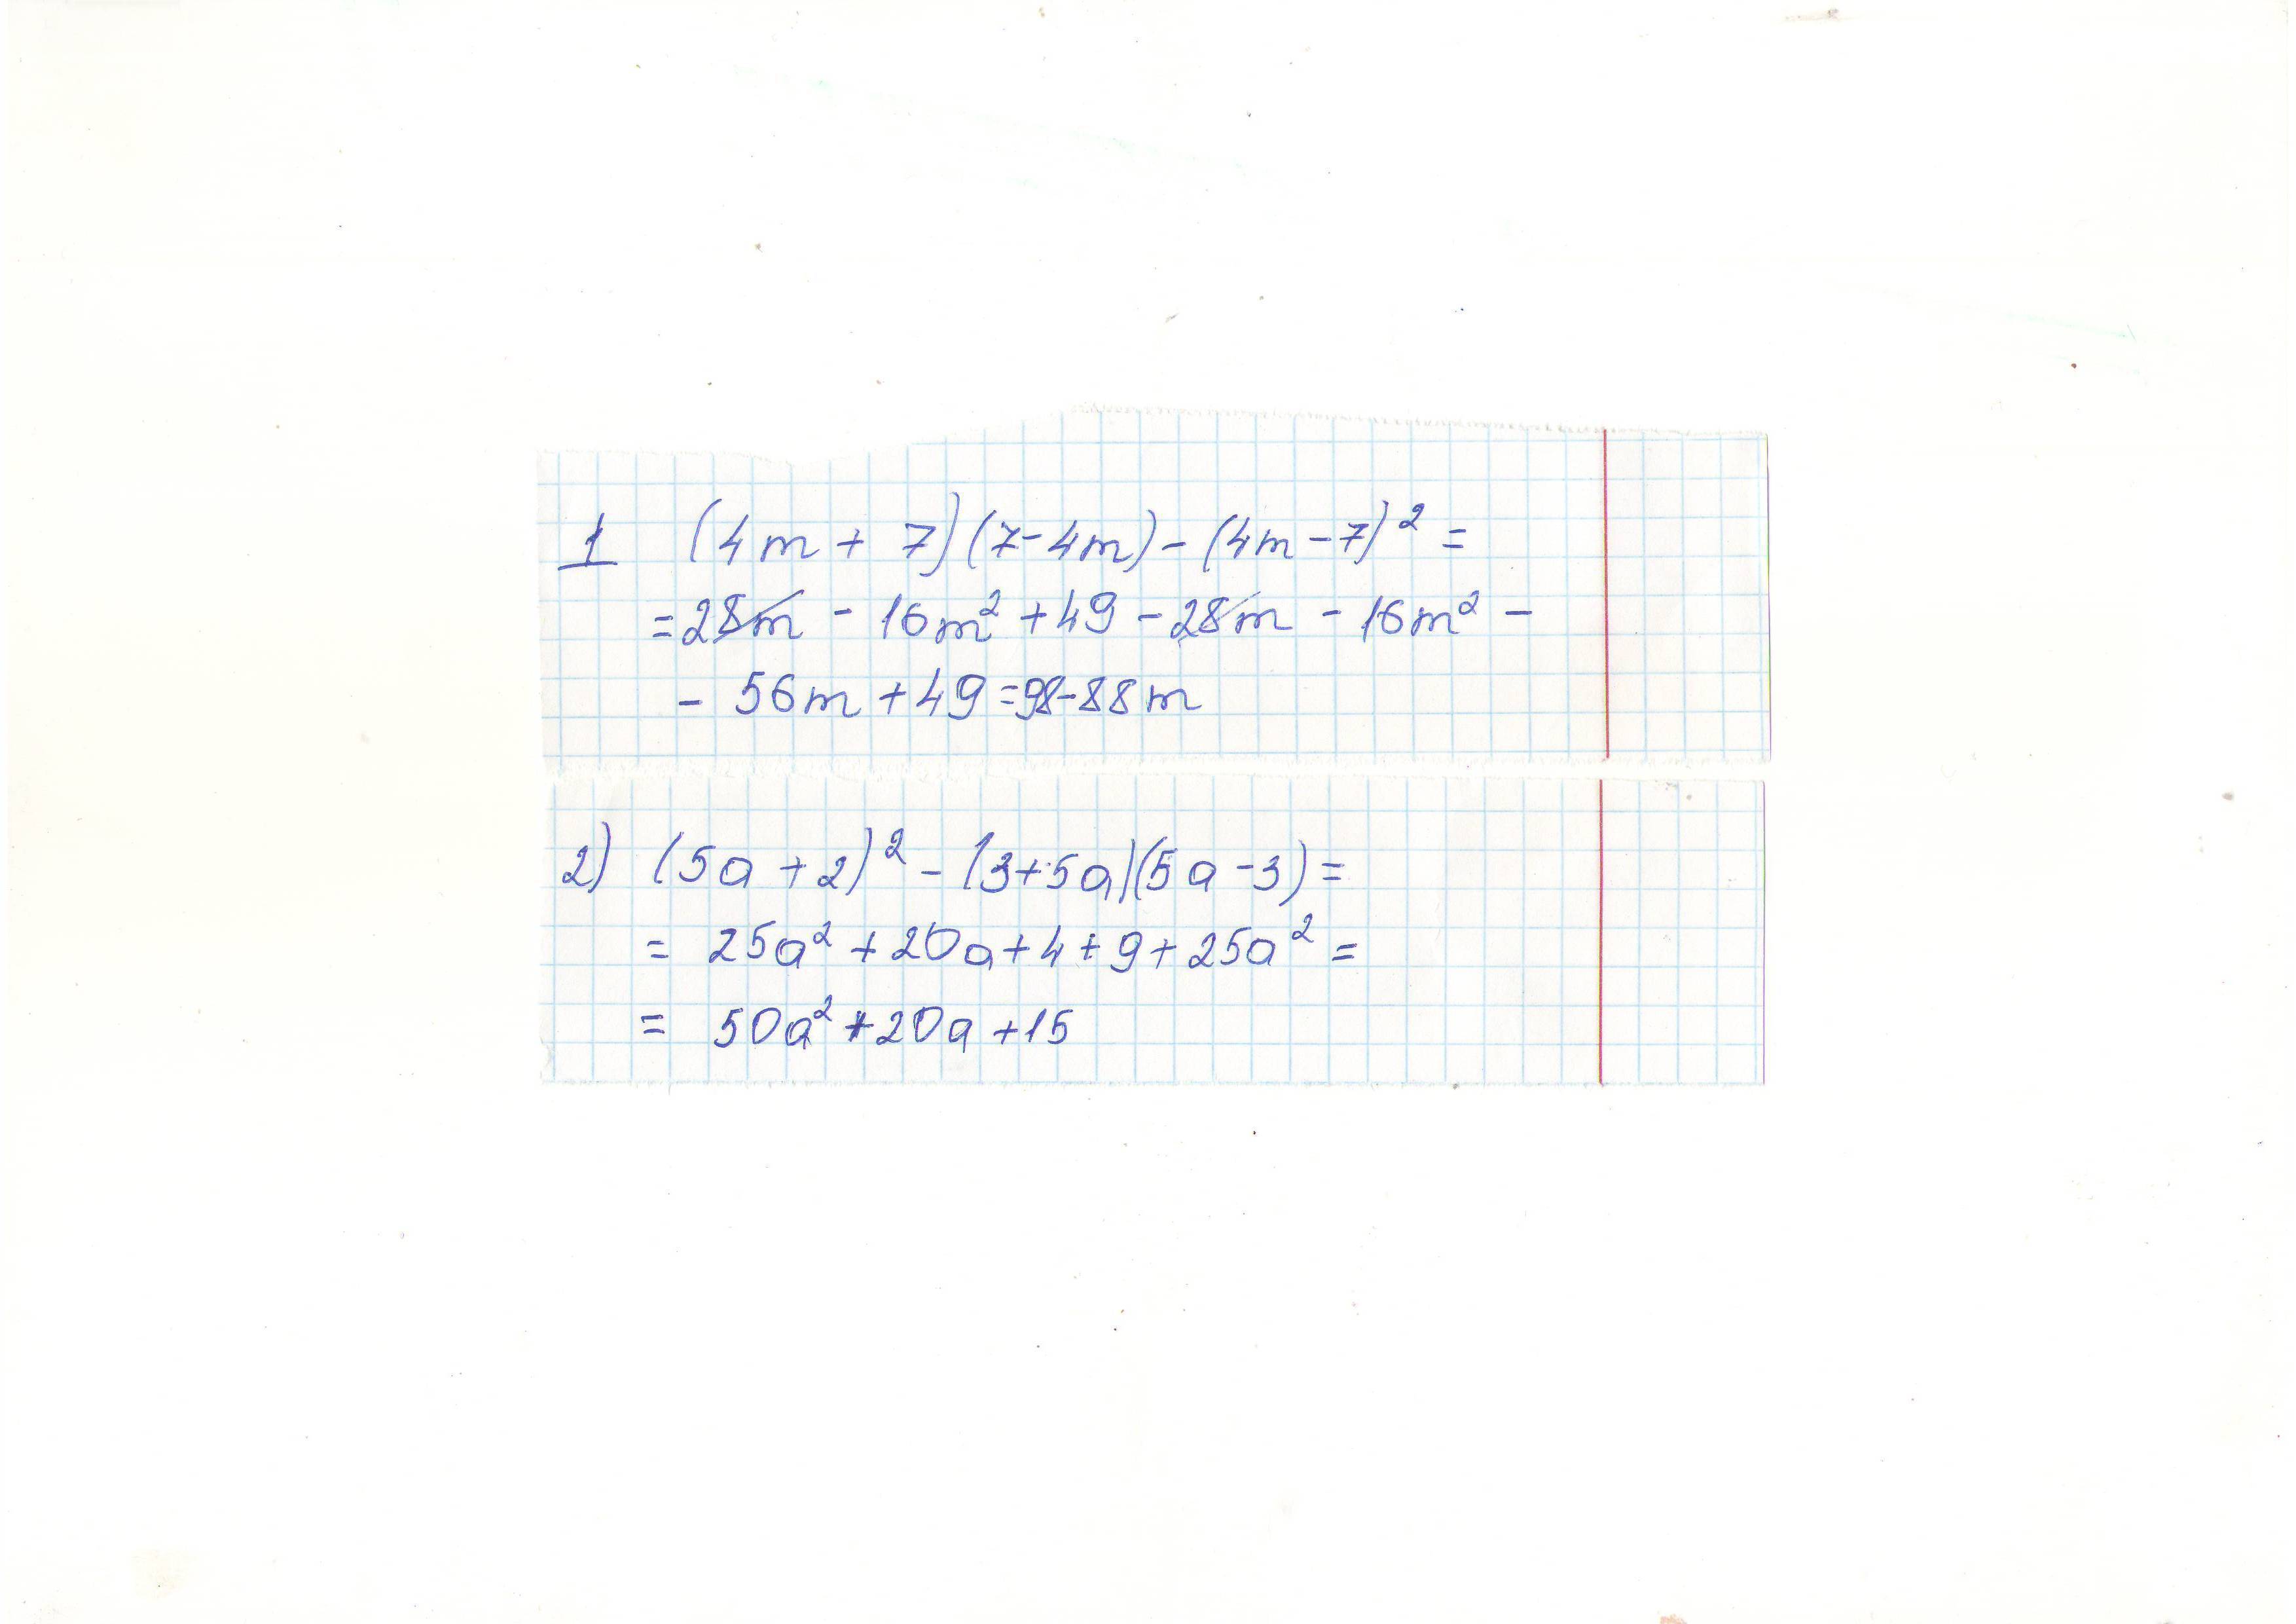 1 (4m + 7)(7-4m) - (4m-7)² =
= 28m - 16m² + 49 - 28m - 16m² -
- 56m + 49 = 98-88m
2) (5a + 2)² - (3+5a)(5a-3) =
= 25a² + 20a + 4 + 9 + 25a² =
= 50a² + 20a + 15